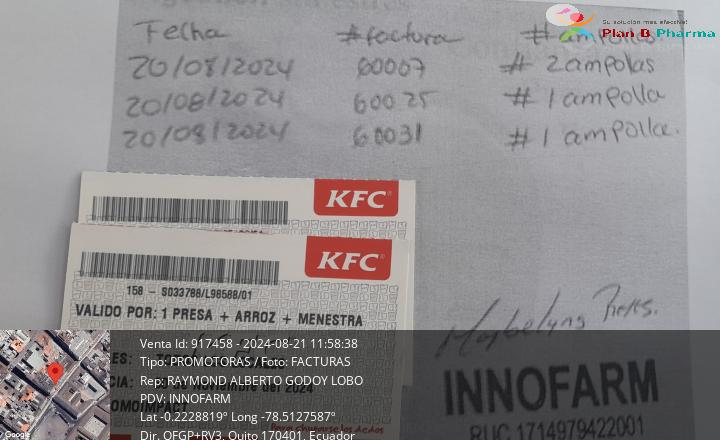 Su solución más efectiva!
Plan B Pharma
Fecha #factura
20/08/2024 60007 # 2 ampolas
20/08/2024 60025 # 1 ampolla
20/08/2024 60031 # 1 ampolla.
KFC
KFC
158 - S033788/L98588/01
VALIDO POR: 1 PRESA + ARROZ + MENESTRA
de Noviembre del 2024
INNOFARM
RUC 1714979422001
Venta Id: 917458 - 2024-08-21 11:58:38
Tipo: PROMOTORAS / Foto: FACTURAS
Rep: RAYMOND ALBERTO GODOY LOBO
PDV: INNOFARM
Lat -0.2228819º Long -78.5127587º
Dir. QFGP+RV3, Quito 170401, Ecuador
Google